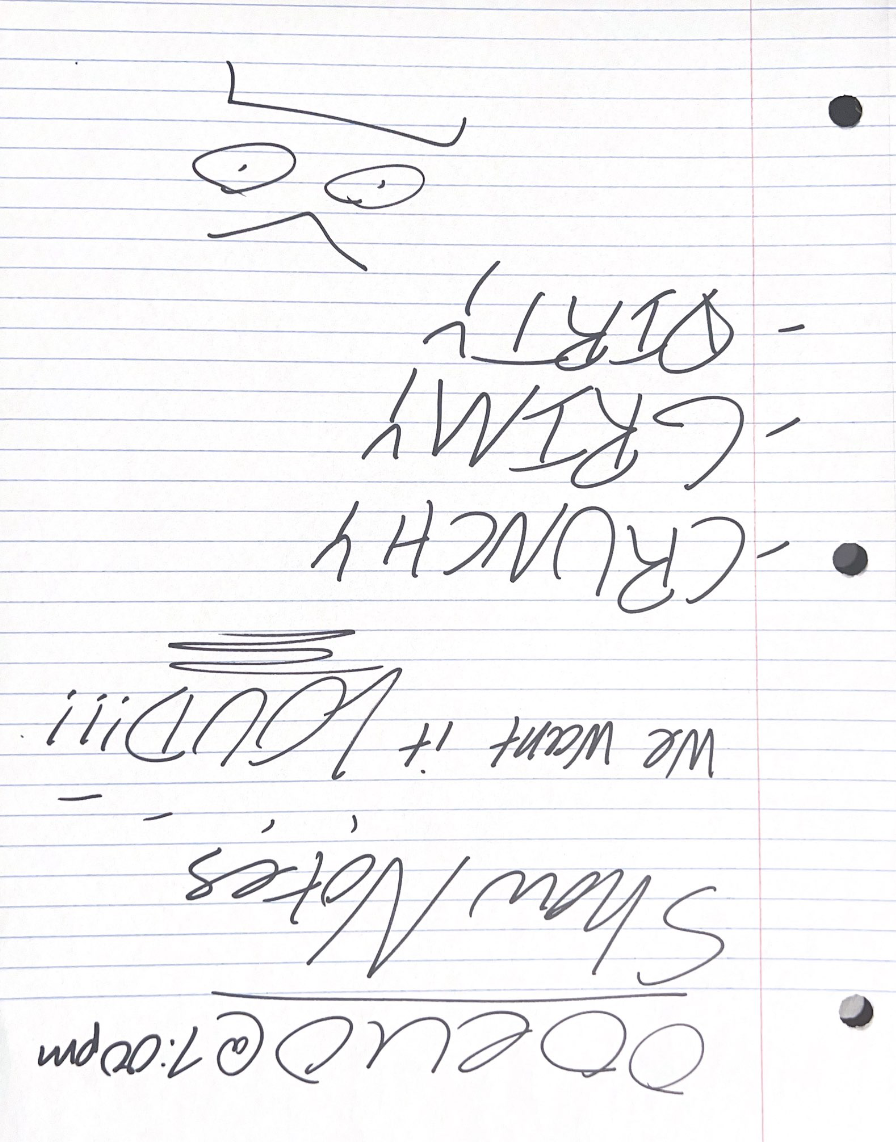 @ 7:00pm
Show Notes
We want it LOUD!!!
- CRUNCHY
- GRIMY
- DIRTY